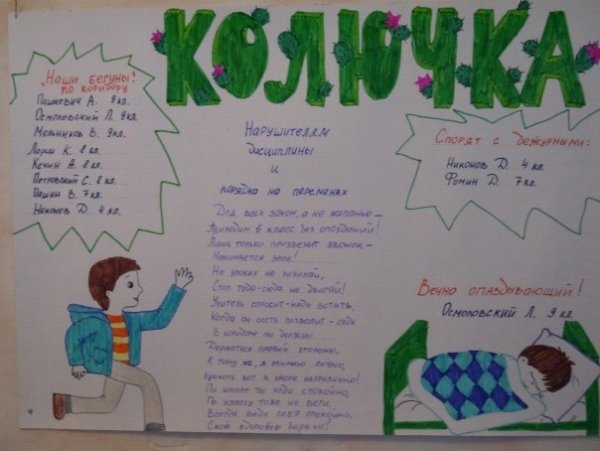 КОЛЮЧКА
"Наши бегуны"
по коридору
Пашкевич А. 9 кл.
Осмоловский Л. 9 кл.
Мельников В. 9 кл.
К. 8 кл.
Кечин А. 8 кл.
Петровский С. 8 кл.
Пашин В. 7 кл.
Никонов Д. 4 кл.
Нарушителям
дисциплины
и
порядка на переменах
Для всех закон, а не желание –
Приходим в класс без опозданий!
Лишь только прозвенит звонок –
Начинается урок!
На уроках не хихикай,
Стол туда-сюда не двигай!
Учитель спросит – надо встать,
Когда он сесть позволит – сядь.
В коридоре мы должны
Держаться правой стороны,
К тому же, я считаю лично,
Кричать вот в школе неприлично!
По школе ты ходи спокойно,
По классу тоже не беги,
Всегда веди себя спокойно,
Своё здоровье береги!
Спорят с дежурными:
Никонов Д. 4 кл.
Фомин Д. 7 кл.
Вечно опаздывающий!
Осмоловский Л. 9 кл.